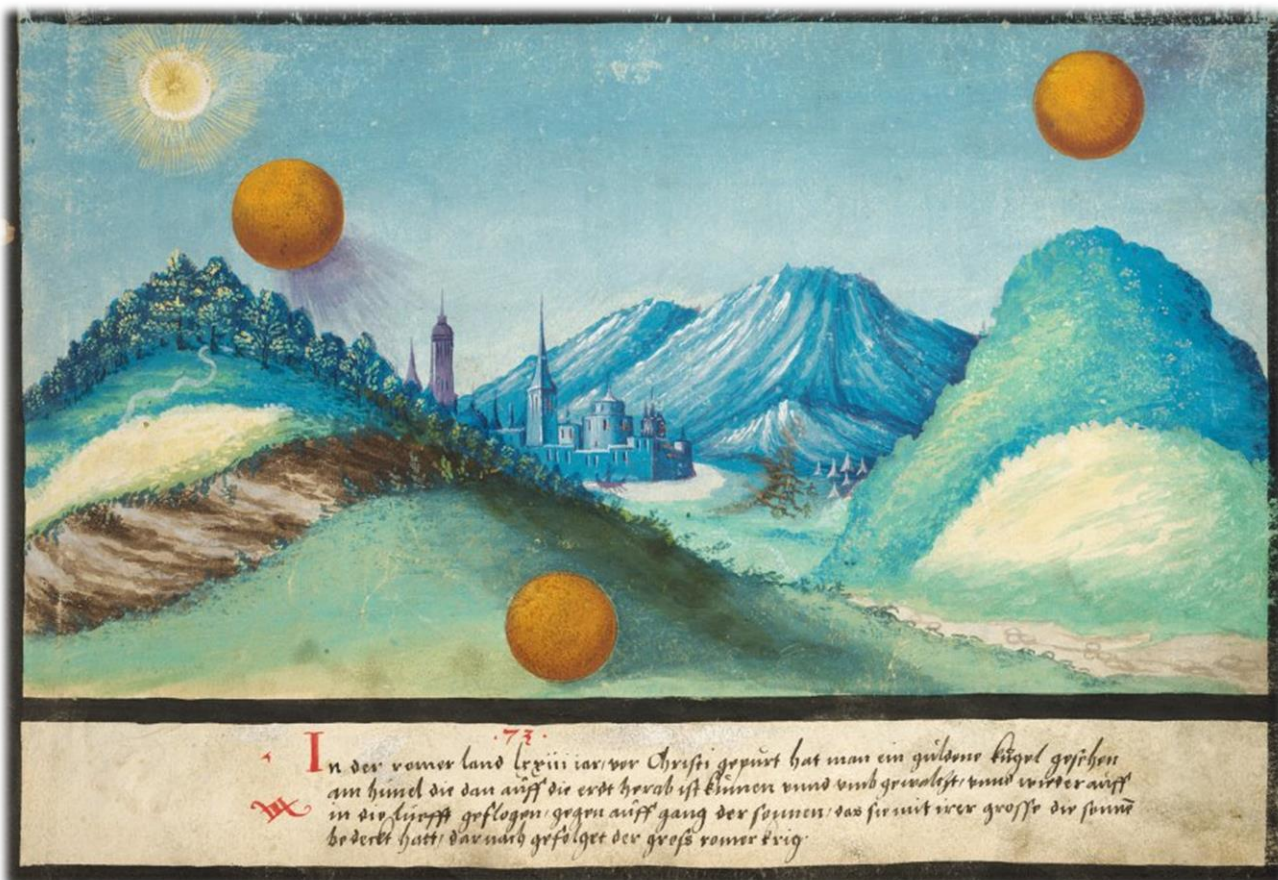 ·73·
In der romer land lxxiii iar vor Christi gepurt hat man ein guldene kugel gesehen
am himel die dan auff die erdt herab ist kumen vnnd vmb gewalcht, vnnd wieder auff
in die lüefft geflogen, gegen auff gang der sonnen, das sie mit irer grosse die sonne
bedeckt hatt, darnach gefolget der gross romer krig·